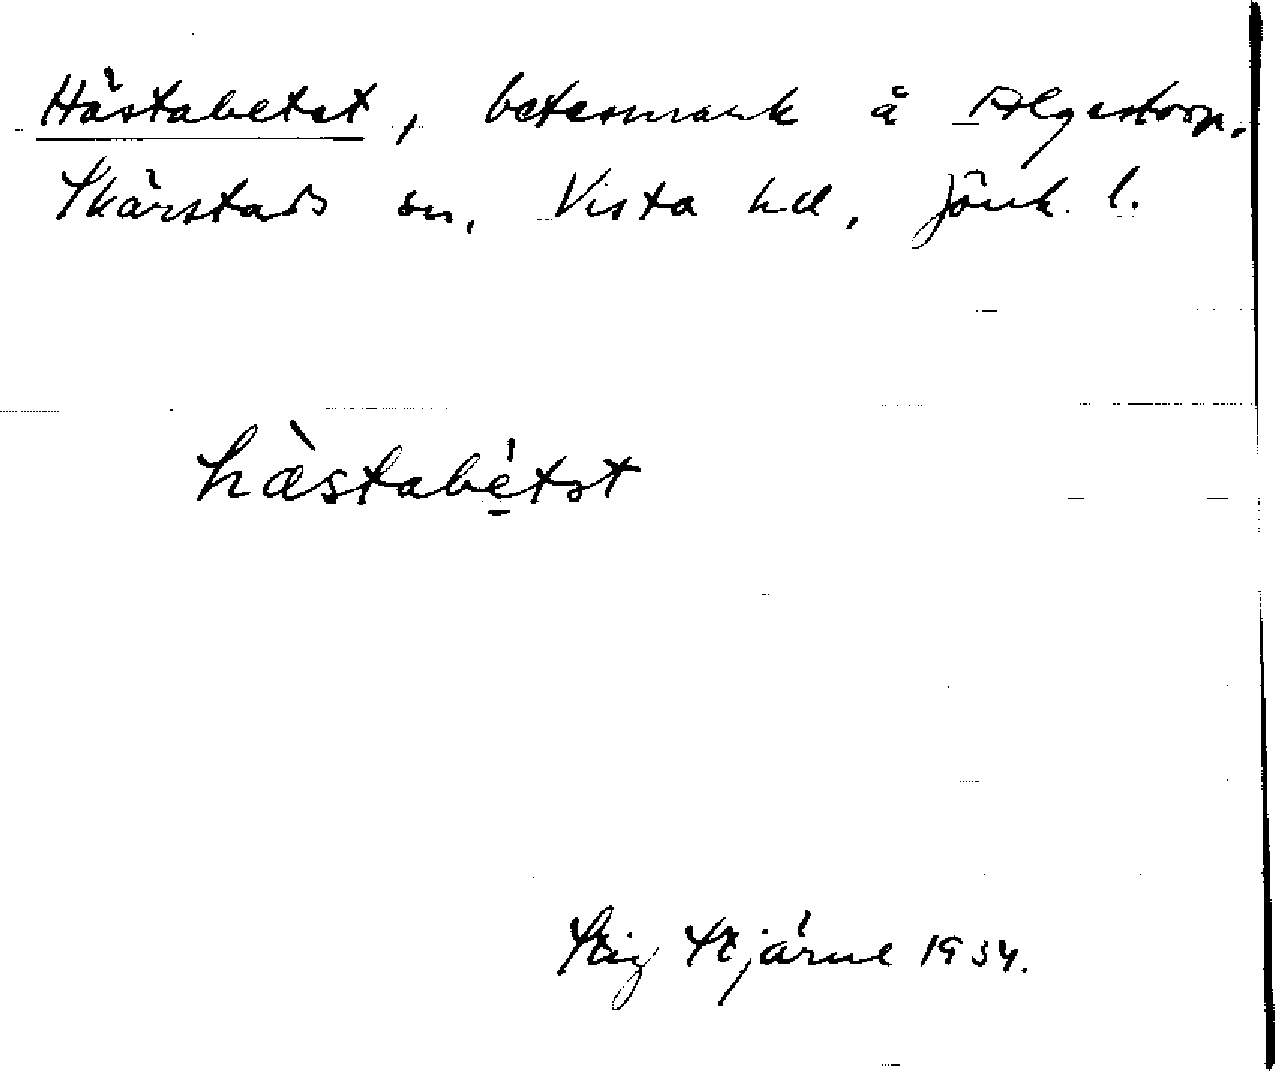 Hästabetet, betesmark å Algestorp.
Skärstads sn, Vista hd, Jönk. l.
hæ̀stabé̱tət
Stig Stjärne 1934.